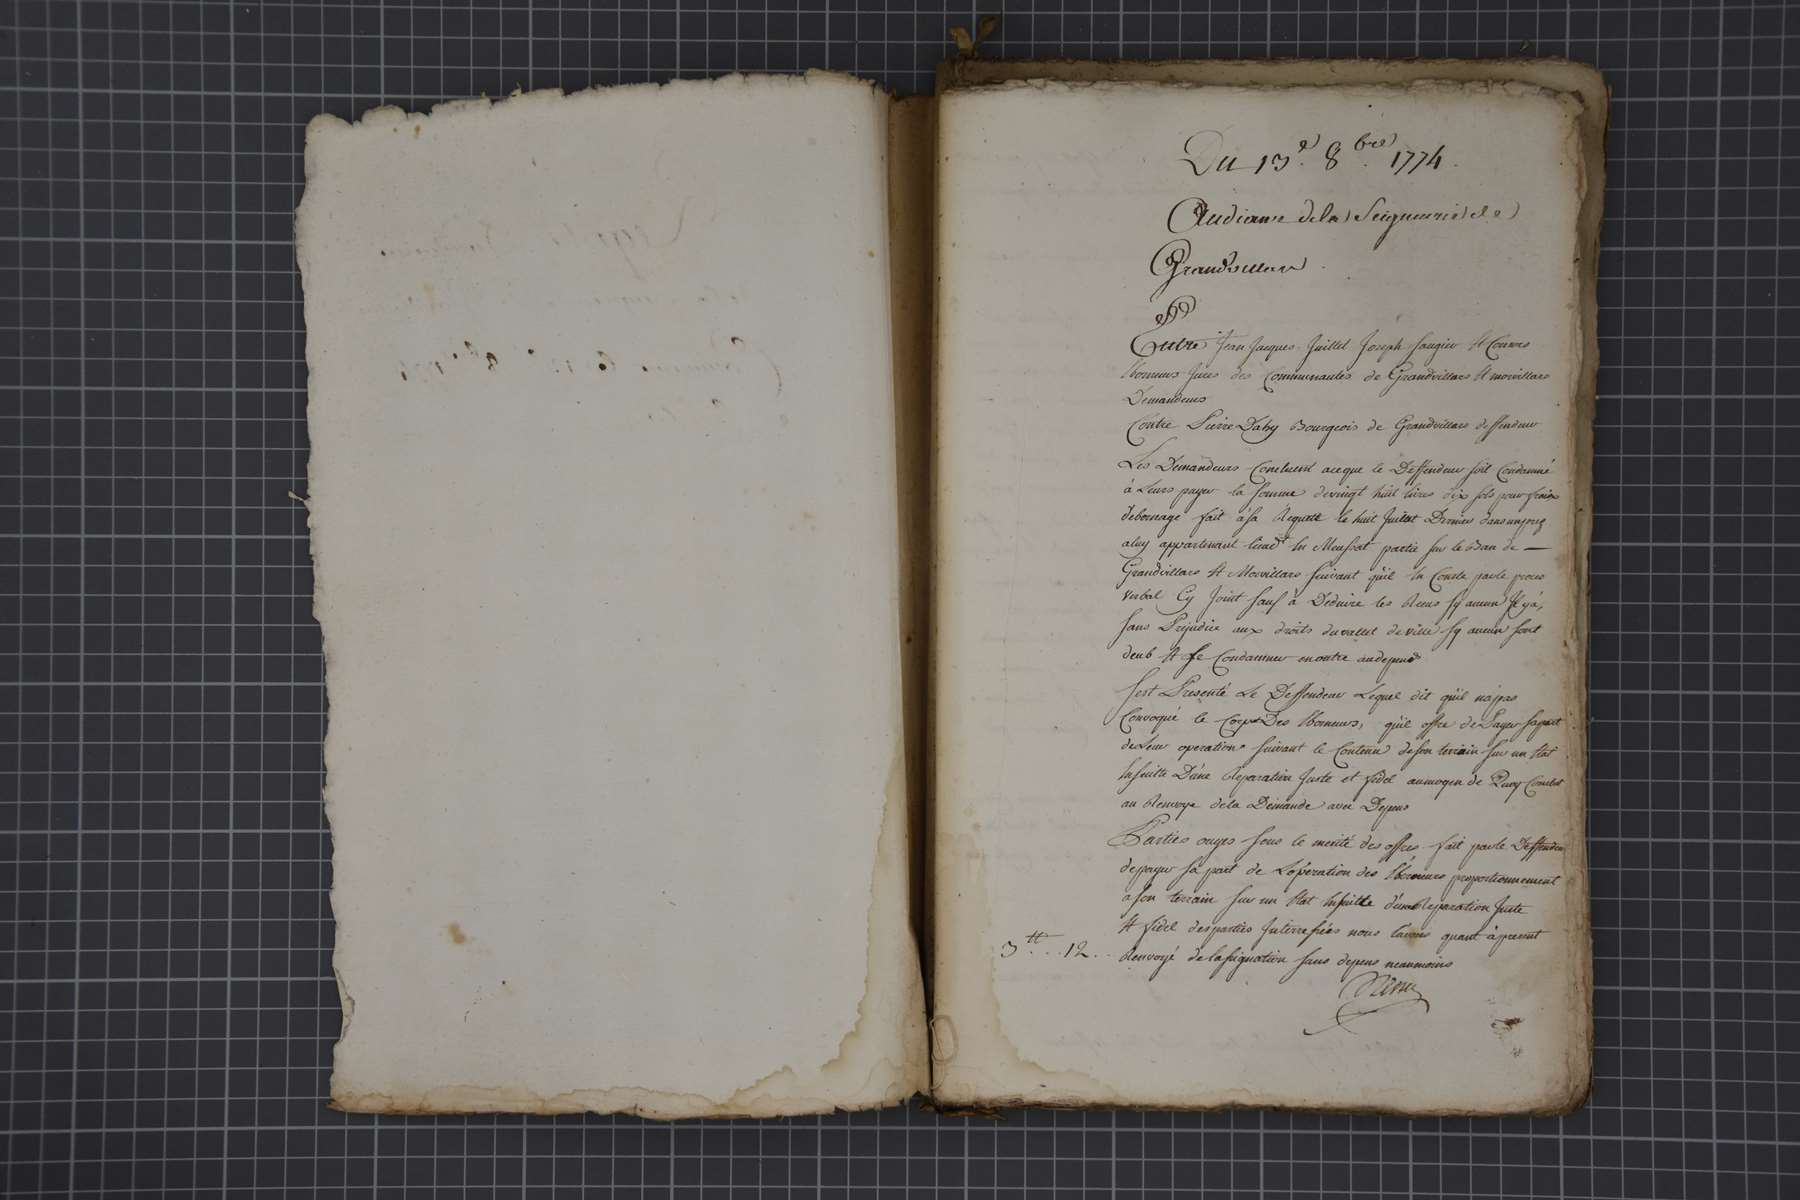 Du 13e. 8bre. 1774.
Audiance de la Seigneurie de
Grandvillars
Entre Jean Jacques Juillet Joseph Saugier Et Consors
Borneurs Jures des Communautés de Grandvillars Et morvillars
Demandeurs
Contre Pierre Dahy Bourgeois de Grandvillars deffendeur
Les Demandeurs Concluent aceque le Deffendeur soit Condamné
à Leurs payer la somme devingt huit livres dix sols pour fraix
debornage fait à sa Requette le huit Juillet Dernier dans un
aluy appartenant lieudt En partie sur le Ban de
Grandvillars Et Morvillars suivant qu'il En Conste parle proces
verbal Cy Joint sauf à Deduire les Reçus sy aucun Il y à,
sans Préjudice aux droits du vallet de ville sy aucun sont
deub Et se Condamner en outre au depend
Sest Presenté Le Deffendeur Lequel dit qu'il na pas
Convoqué le Corps Des Borneurs, qu'il offre de Payer sa part
de Leur operation suivant le Contenu de son terrain sur un Etat
Ensuitte D'une Reparation Juste et fidel aumoyen de Quoy Conclut
au Renvoye dela Demande avec Depens
Parties ouyes sous le merité des offres fait parle Deffendeur
depayer sa part de L'opération des Borneurs proportionnement
à son terrain sur un Etat Ensuitte d'une Reparation Juste
Et fidel des parties Interressées nous lavons quant à present
3tt...12.. Renvoyé de lassignation sans depens neanmoins